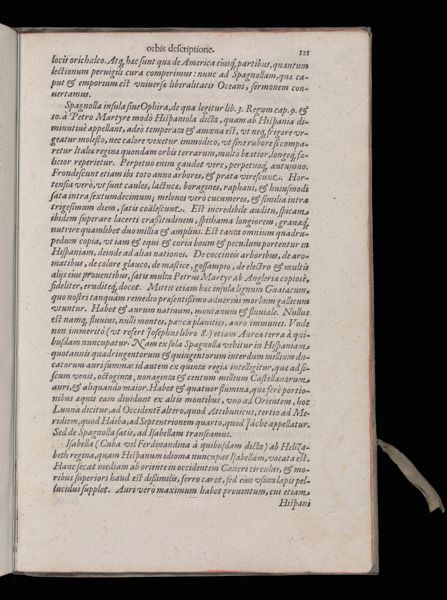 orbis descriptione. 121
locis orichalco. Atq, hæc sunt quæ de America eiusq, partibus, quantum
lectionum peruigili cura comperimus: nunc ad Spagnollam, quæ ca-
put & emporium est vniuersæ liberalitatis Oceani, sermonem con-
uertamus.
Spagnolla insula siue Ophira, de qua legitur lib. 3. Regum cap. 9. &
10. à Petro Martyre modò Hispaniola dicta, quam ab Hispania di-
minutiuè appellant, adeò temperata & amœna est, vt neq, frigore vr-
geatur molesto, nec calore vexetur immodico, vt sine rubore si compa-
retur Italiæ regina quondam orbis terrarum, multò beatior, longeq, fæ-
licior reperietur. Perpetuo enim gaudet vere, perpetuoq, autumno.
Frondescunt etiam ibi toto anno arbores, & prata virescunt. Hor-
tensia verò, vt sunt caules, lactucæ, boragines, raphani, & huiusmodi
sata intra sextumdecimum, melones verò cucumeres, & similia intra
trigesimum diem, satis coalescunt. Est incredibile auditu, spicam
ibidem superare lacerti crassitudinem, spithama longiorem, granaq,
nutrire quamlibet duo millia & amplius. Est tanta omnium quadru-
pedum copia, vt iam & equi & coria boum & pecudum portentur in
Hispaniam, deinde ad alias nationes. De coccineis arboribus, de aro-
matibus, de colore glauco, de mastice, gossampio, de electro & multis
alijs eius prouentibus, satis multa Petrus Martyr ab Angleria copiosè,
fideliter, eruditeq, docet. Mittit etiam hæc insula lignum Guaiacum,
quo nostri tanquàm remedio præsentissimo aduersus morbum gallicum
vtuntur. Habet & aurum natiuum, montanum & fluuiale. Nullus
est namq, fluuius, nulli montes, pauca planities, auro immunes. Vnde
non immeritò (vt refert Josephus libro 8.) etiam Aurea terra à qui-
busdam nuncupatur. Nam ex sola Spagnolla vehitur in Hispaniam
quotannis quadringentorum & quingentorum interdum millium du-
catorum auri summa: id autem ex quinta regia intelligitur, quæ ad fi-
scum venit, octoginta, nonaginta & centum millium Castellanorum
auri, & aliquando maior. Habet & quatuor flumina, quæ ferè portio-
nibus æquis eam diuidunt ex altis montibus, vno ad Orientem, hoc
Iunna dicitur, ad Occidentē altero, quod Attibunicus, tertio ad Me-
ridiem, quod Haiba, ad Septentrionem quarto, quod Jache appellatur.
Sed de Spagnolla satis, ad Isabellam transeamus.
Isabella (Cuba vel Ferdinandina à quibusdam dicta) ab Helisa-
beth regina, quam Hispanum idioma nuncupat Isabellam, vocata est.
Hanc secat mediam ab oriente in occidentem Cancri circulus, & mo-
ribus superiori haud est dissimilis, ferro caret, sed eius vsum lapis pel-
lucidus supplet. Auri verò maximum habet prouentum, cui etiam
Hispani